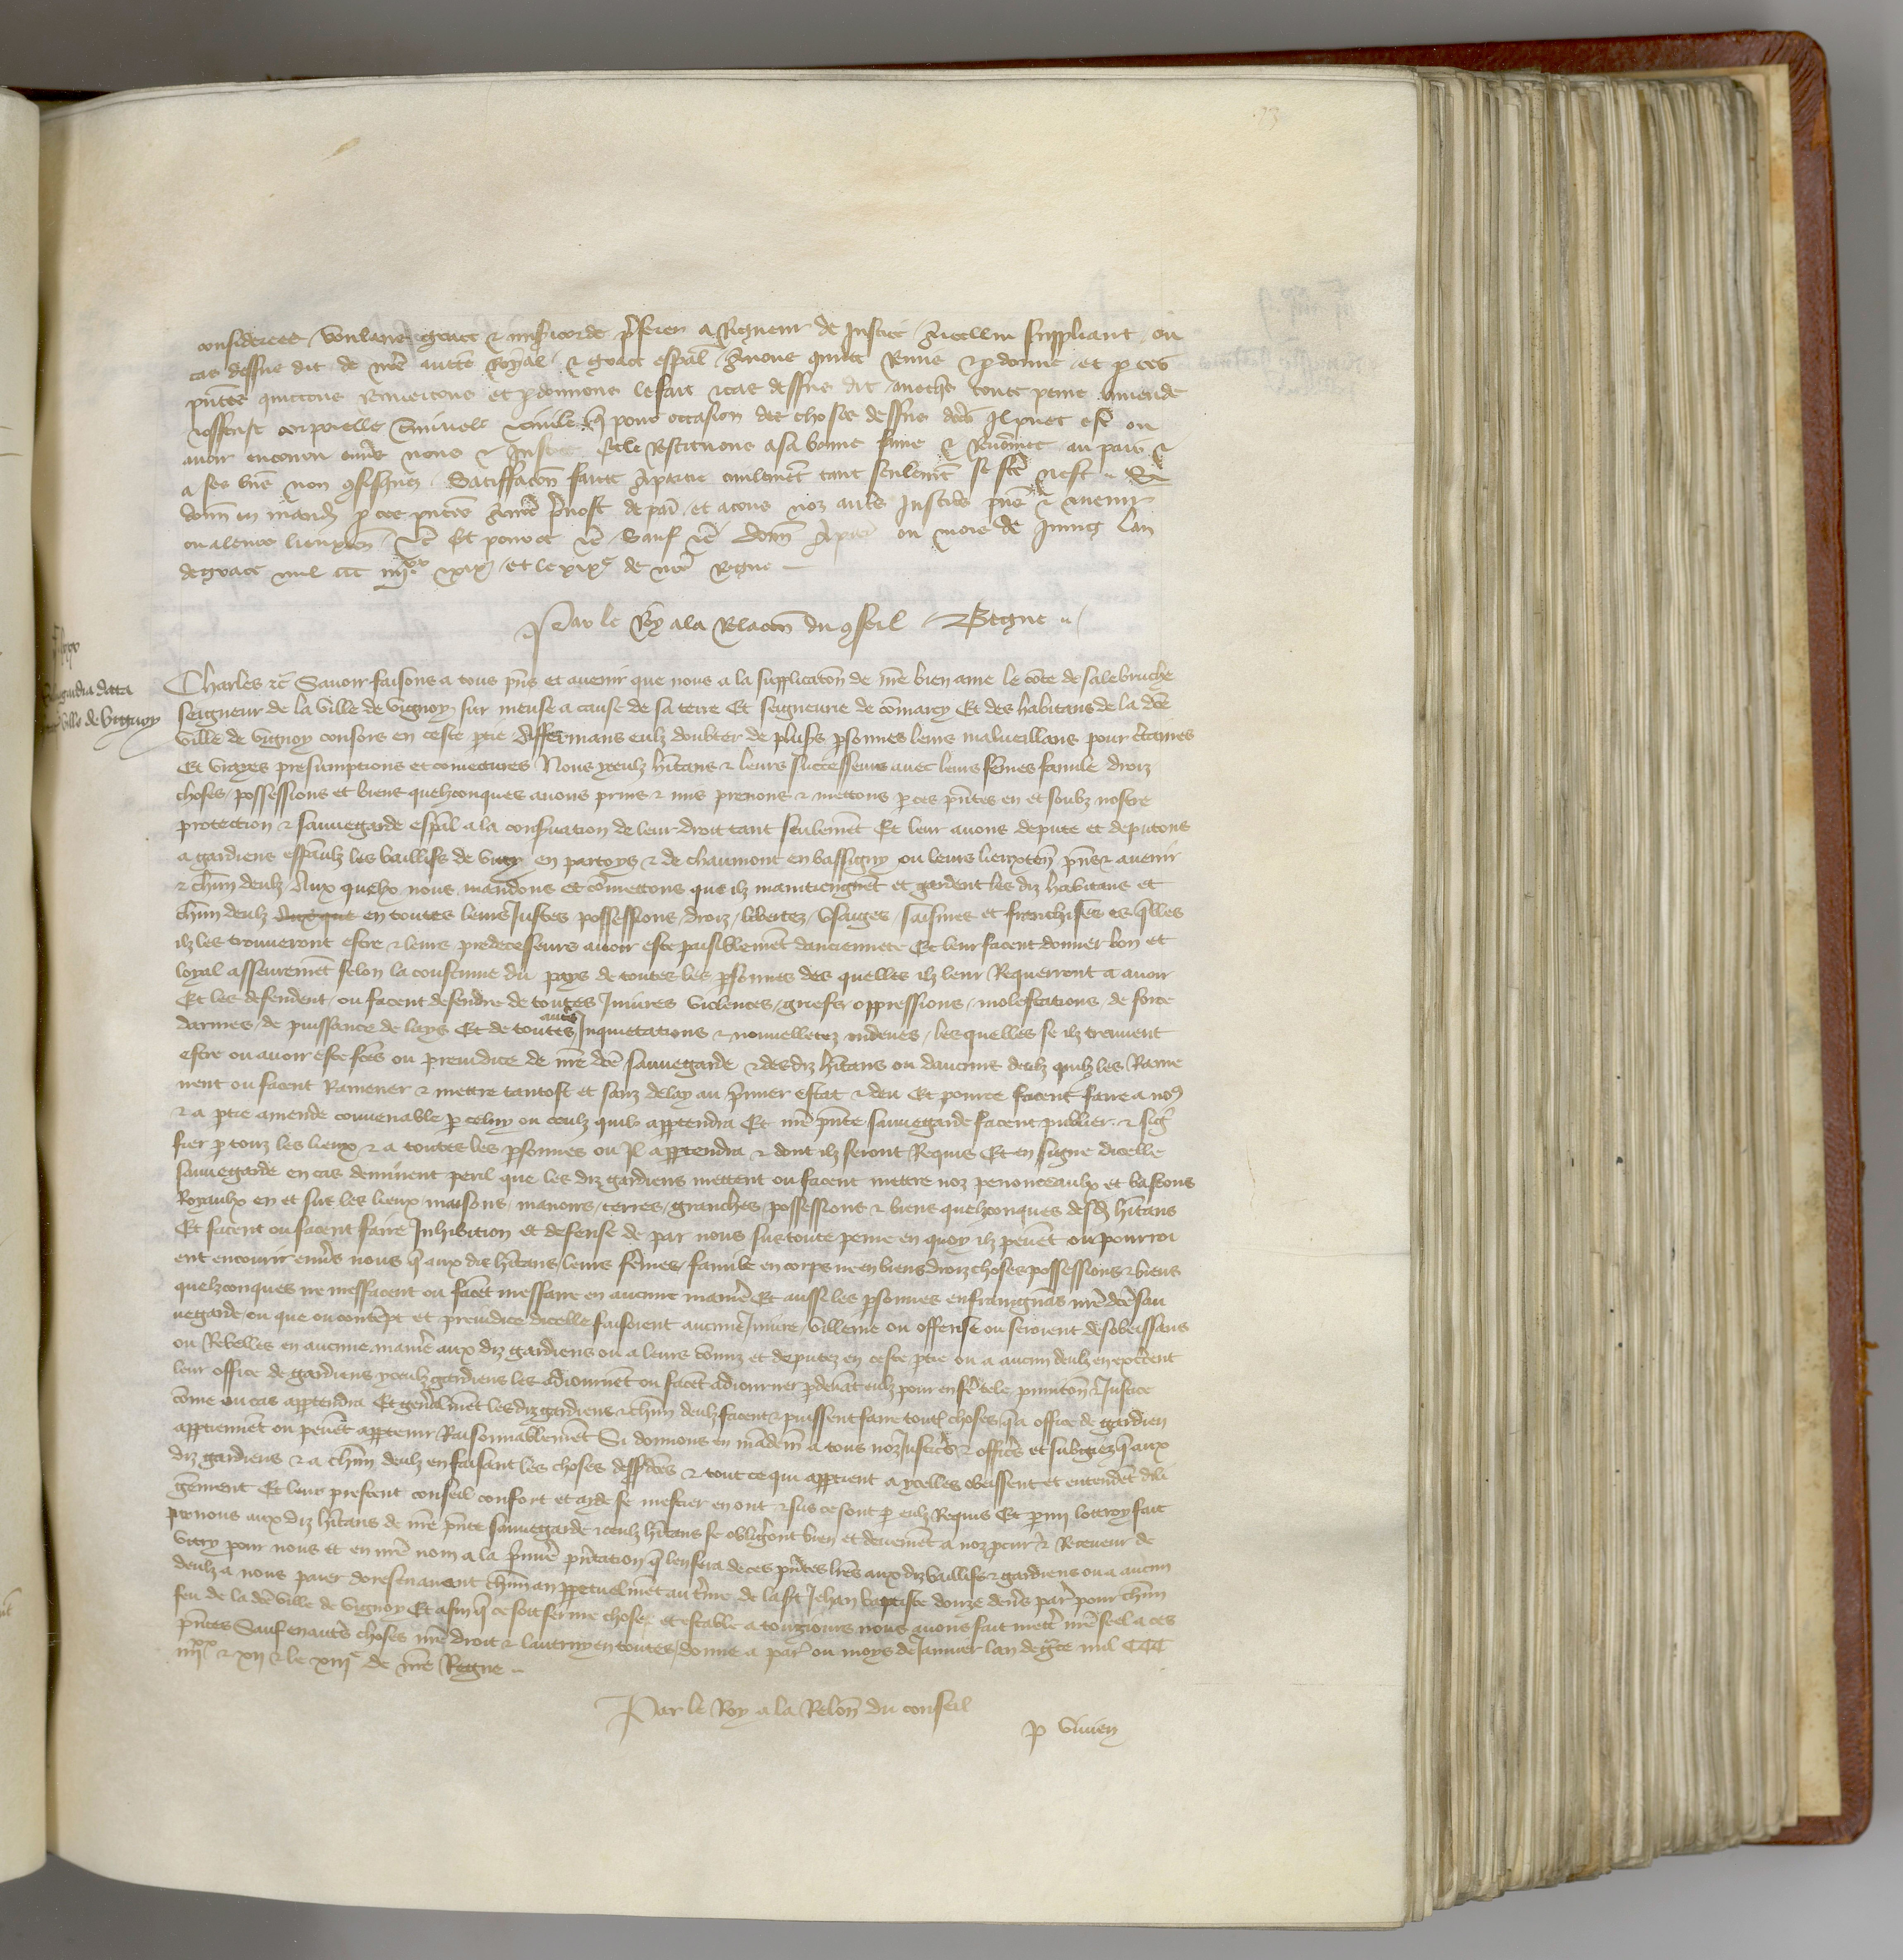 73
considerees voulans grace & misericorde preferer a rigueur de justice a icellui suppliant ou
cas dessus dit de nre auctte Royal & grace espal avons quitte Remis & pdonne et p ces
pntes quittons Remettons et pdonnons le fait & cas dessus dit avecques toute peine amende
& offense corporelle criminele & civile que pour occasion des choses dessus dctes Il puet estre ou
avoir encouru envers nous & Justice & le Restituons a sa bonne fame & Renommee au pais &
a ses biens non confisquez Satisfaccon faicte a partie civilement tant seulemt se fte nest Si
donn en mand p ces pntes au prevost de par et a tous noz autres Justiciers pns & avenir
ou a leurs lieuxten &c Et pour ce &c Sauf &c donn a paris ou mois de Juing lan
de grace mil ccc iiijxx xix et le xixe de nre Regne
Par le Roy a la Relacon du conseil Begne
Salvagardia data
ville de Vignoy
Charles &c Savoir faisons a tous pns et avenir que nous a la supplicaton de nre bien ame le cote de salebruche
seigneur de la ville de vignoy sur meuse a cause de sa terre Et seigneurie de comarcy Et des habitans de la dce
ville de vignoy consors en ceste ptie Affermans eulz doubter de plusrs psonnes leurs malveillans pour ctaines
Et vrayes presumptions et coniectures Nous yceulz hitans & leurs successeurs avec leurs femes famile droiz
choses possessions et biens quelzconques avons prins & mis prenons & mettons p ces pntes en et soubz nostre
protection & sauvegarde espal a la conservation de leur droit tant seulemt Et leur avons depute et deputons
a gardiens espaulz les baillifs de vitry en partoys & de chaumont en bassigny ou leurs lieuxten pns & avenir
& chun deulz Aux quelx nous mandons et comettons que ilz maintiengnet et gardent les diz habitans et
chun deulz en toutes leurs Justes possessions droiz libertez Usaiges saisines et franchises es qlles
ilz les trouveront estre & leurs predecesseurs avoir este paisiblemet danciennete Et leur facent donner bon et
loyal asseuremet selon la coustume du pays de toutes les psonnes des quelles ilz leur Requerront a avoir
Et les defendent ou facent defendre de toutes Iniures violences griefs oppressions molestations de force
darmes de puissance de lays Et de toutes autres Inquietations & nouvelletez indeues les quelles se ilz treuvent
estre ou avoir este fctes ou preiudice de nre dce sauvegarde & des diz hitans ou daucuns deulz quilz les Rame
nent ou facent Ramener & mettre tantost et sanz delay au pmier estat & deu Et pource facent faire a nos
& a ptie amende convenable p celuy ou ceulz quil apptendra Et nre pnte sauvegarde facent publier & sig
fier p touz les lieux & a toutes les psonnes ou Il apptendra & dont ilz seront Requis Et en signe dicelle
sauvegarde en cas deminent peril que les diz gardiens mettent ou facent mettre noz penonceaulx et bastons
Royaulx en et sus les lieux maisons manoirs terres granches possessions & biens quelzconques desd hitans
Et facent ou facent faire Inhibition et defense de par nous sus toute peine en quoy ilz peuet ou pourroi
ent encourir envs nous q aux dis hitans leurs femes famile en corps ne en biens droiz choses possessions & biens
quelzconques ne meffacent ou facet meffaire en aucune maniere Et aussi les psonnes enfraingnas nre dce sau
vegarde ou que ou contept et preiudice dicelle faisoient aucune Iniure villenie ou offense ou seroient desobeissans
ou Rebelles en aucune manre aux diz gardiens ou a leurs comis et deputez en ceste ptie ou a aucun deulz en excedent
leur office de gardiens yceulz gardiens les adiournet ou facet adiourner pdevat eulz pour en fe tele puniton & Justice
come ou cas apptendra Et genalmet les diz gardiens & chun deulz facent & puissent faire toutes choses q a office de gardien
apptiennet ou peuet apptenir Raisonnablemet Si donnons en mademt a tous noz Justicrs & officrs et subgiez q aux
diz gardiens & a chun deulz en faisant les choses dessus dces & tout ce qui apptient a ycelles obeissent et entendet dili
gement Et leur prestent conseil confort et ayde se mestier en ont & sus ce sont p eulz Requis Et pmi lottroy fait
p nous aux diz hitans de nre pnte sauvegarde iceulz hitans se obligront bien et deuemet a noz pcur & Receveur de
vitry pour nous et en nre nom a la pmie pntation q len fera de ces pntes lres aux diz baillifs & gardiens ou a aucun
deulz a nous paier doresenavant chun an ppetuelmet au tme de la st Jehan baptiste douze deners par pour chun
feu de la dce ville de vignoy Et afin q ce soit ferme chose et estable a tousjours nous avons fait mett nre seel a ces
pntes Sauf en autrs choses nre droit & lautruy en toutes donne a par ou moys de Janvier lan de gce mil CCC
iiijxx & xij & le xiije de nre Regne
Par le Roy a la Relon du conseil
p vivien